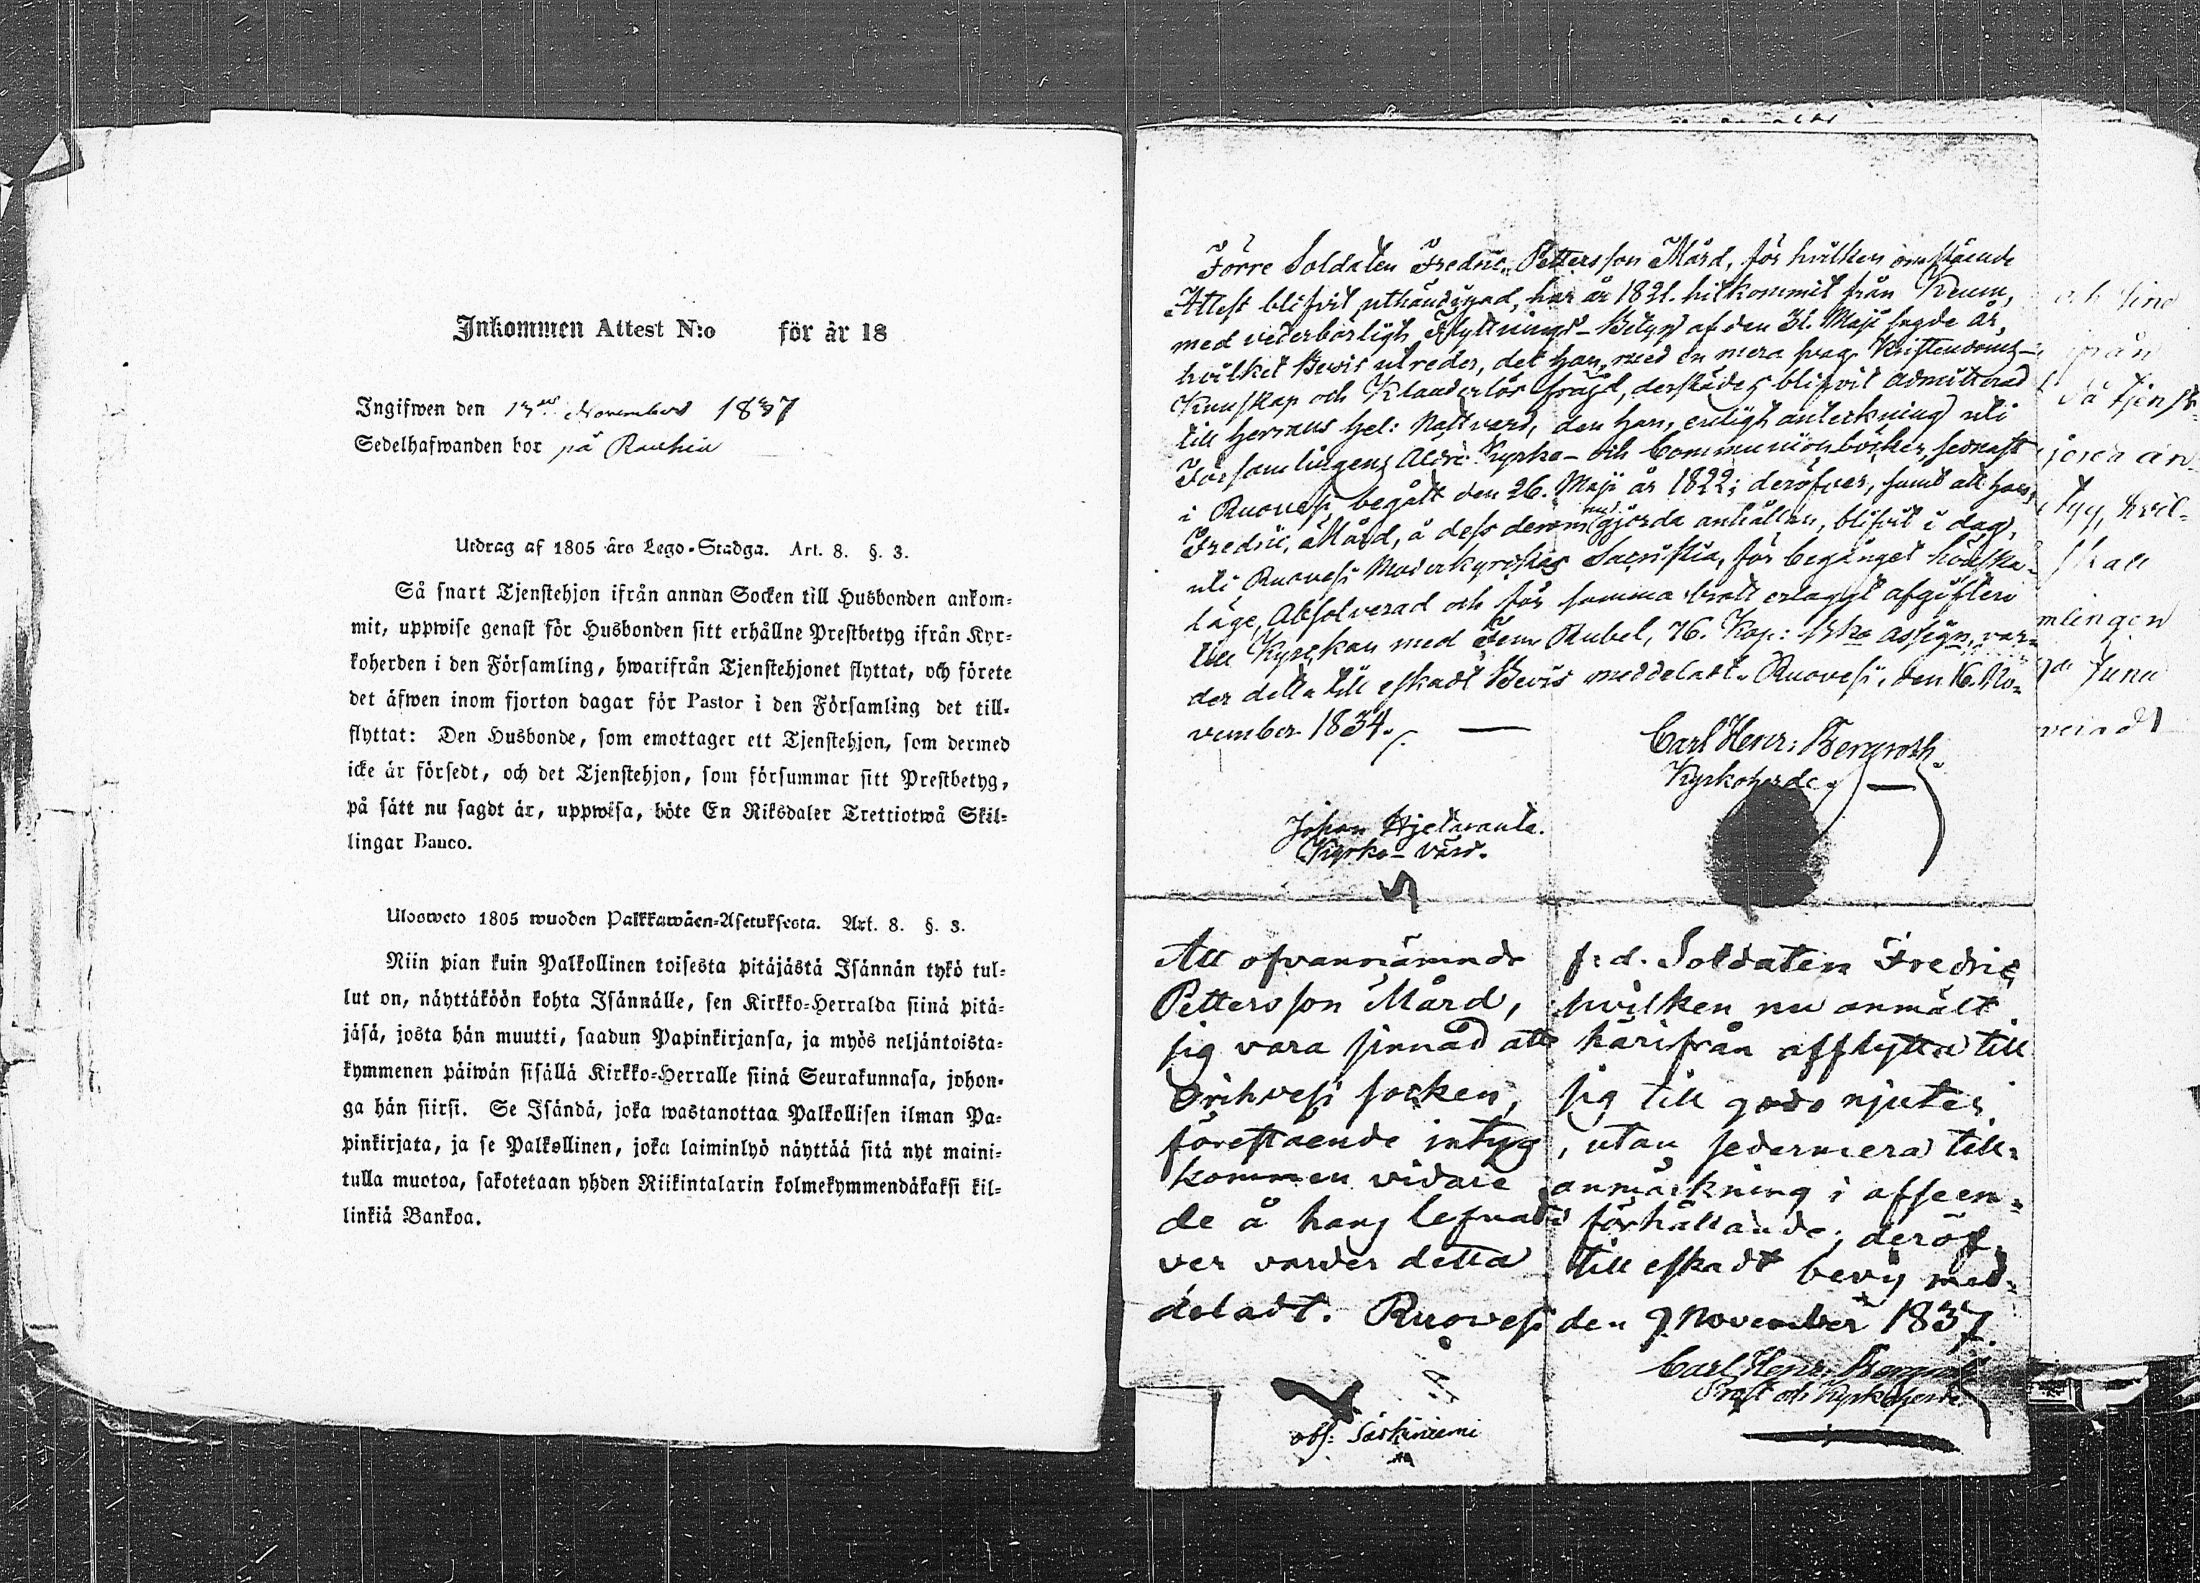 Inkommen Attest N:o för år 18
Ingifwen den 13de November 1837
Sedelhafwanden bor på
Utdrag af 1805 års Lego-Stadga. Art. 8. §. 3.
Så snart Tjenstehjon ifrån annan Socken till Husbonden ankom-
mit, uppwise genast för Husbonden sitt erhållne Prestbetyg ifrån Kyr-
koherden i den Församling, hwarifrån Tjenstehjonet flyttat, och förete
det äfwen inom fjorton dagar för Pastor i den Församling det till-
flyttat: Den Husbonde, som emottager ett Tjenstehjon, som dermed
icke är försedt, och det Tjenstehjon, som försummar sitt Prestbetyg,
på sätt nu sagdt är, uppwisa, böte En Riksdaler Trettiotwå Skil-
lingar Banco.
Ulosweto 1805 wuoden Palkkawäen-Asetuksesta. Art. 8. §. 3.
Niin pian kuin Palkollinen toisesta pitäjästä Isännän tykö tul-
lut on, näyttäköön kohta Isännälle, sen Kirkko-Herralda siinä pitä-
jäsä, josta hän muutti, saadun Papinkirjansa, ja myös neljäntoista-
kymmenen päiwän sisällä Kirkko-Herralle siinä Seurakunnasa, johon-
ga hän siirsi. Se Isändä, joka wastanottaa Palkollisen ilman Pa-
pinkirjata, ja se Palkollinen, joka laiminlyö näyttää sitä nyt maini-
tulla muotoa, sakotetaan yhden Riikintalarin kolmekymmendäkaksi kil-
linkiä Bankoa.
Förre Soldaten Fredric Pettersson Mård, för hvilken omstående
Attest blifvit uthändigad, har år 1821. hitkommit från
med vederbörligt Flyttnings-Betyg af den 31. Maji sagde år,
hvilket Bevis utreder, det han, med en mera svag Kristendoms-
Kunskap och Klanderlös fräjd, derstädes blifvit admitterad
till Herrans Hel: Nattvard, den han, enligt anteckning uti
Församlingens Äldre Kyrko- och Communion böcker, sednast
i Ruovesi begått den 26. Maji år 1822; deröfver, samt att han,
Fredric Mård, å dess derom nu gjorda anhållan, blifvit i dag,
uti Ruovesi Moderkyrckas Sacristia, för begånget
läge, Absolverad och för samma brott erlagt afgiften
till Kyrckan med Fem Rubel, 76. Kop: Bko assign, var-
der detta till eskadt Bevis meddeladt. Ruovesi, den 16. No-
vember 1834.
Carl Henr: Bergroth.
Kyrkoherde.
Johan
Kyrko-värd.
Att ofvannämnde f: d. Soldaten Fredric
Pettersson Mård, hvilken nu anmält
sig vara sinnad att härifrån afflytta till
Orihvesi socken, sig till godo njuter
förestående intyg, utan sedermera till-
kommen vidare anmärkning i afseen-
de å hans lefnads förhållande; deröf-
ver varder detta till eskadt bevis med-
deladt. Ruovesi den 9 November 1837.
Carl Henr: Bergroth
Prost och Kyrkoherde
obs: Särkiniemi